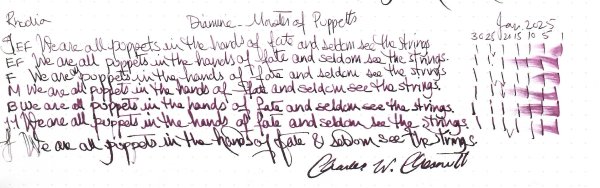 Rhodia Diamine - Master of Puppets Jan. 2025
30 25 20 15 10 5 1
EF We are all puppets in the hands of fate and seldom see the strings
EF We are all puppets in the hands of fate and seldom see the strings.
F We are all puppets in the hands of fate and seldom see the strings
M We are all puppets in the hands of fate and seldom see the strings.
B We are all puppets in the hands of fate and seldom see the strings.
We are all puppets in the hands of fate and seldom see the strings.
We are all puppets in the hands of fate & seldom see the strings
Charles W. Chesnutt